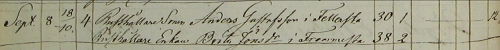 Sept. 8 18/10. 4 Rusthållare Sonen Anders Gustafsson i Fellasta 30 1 12
Rusthållare Enkan Brita Jönsd: i Frommesta 38 2